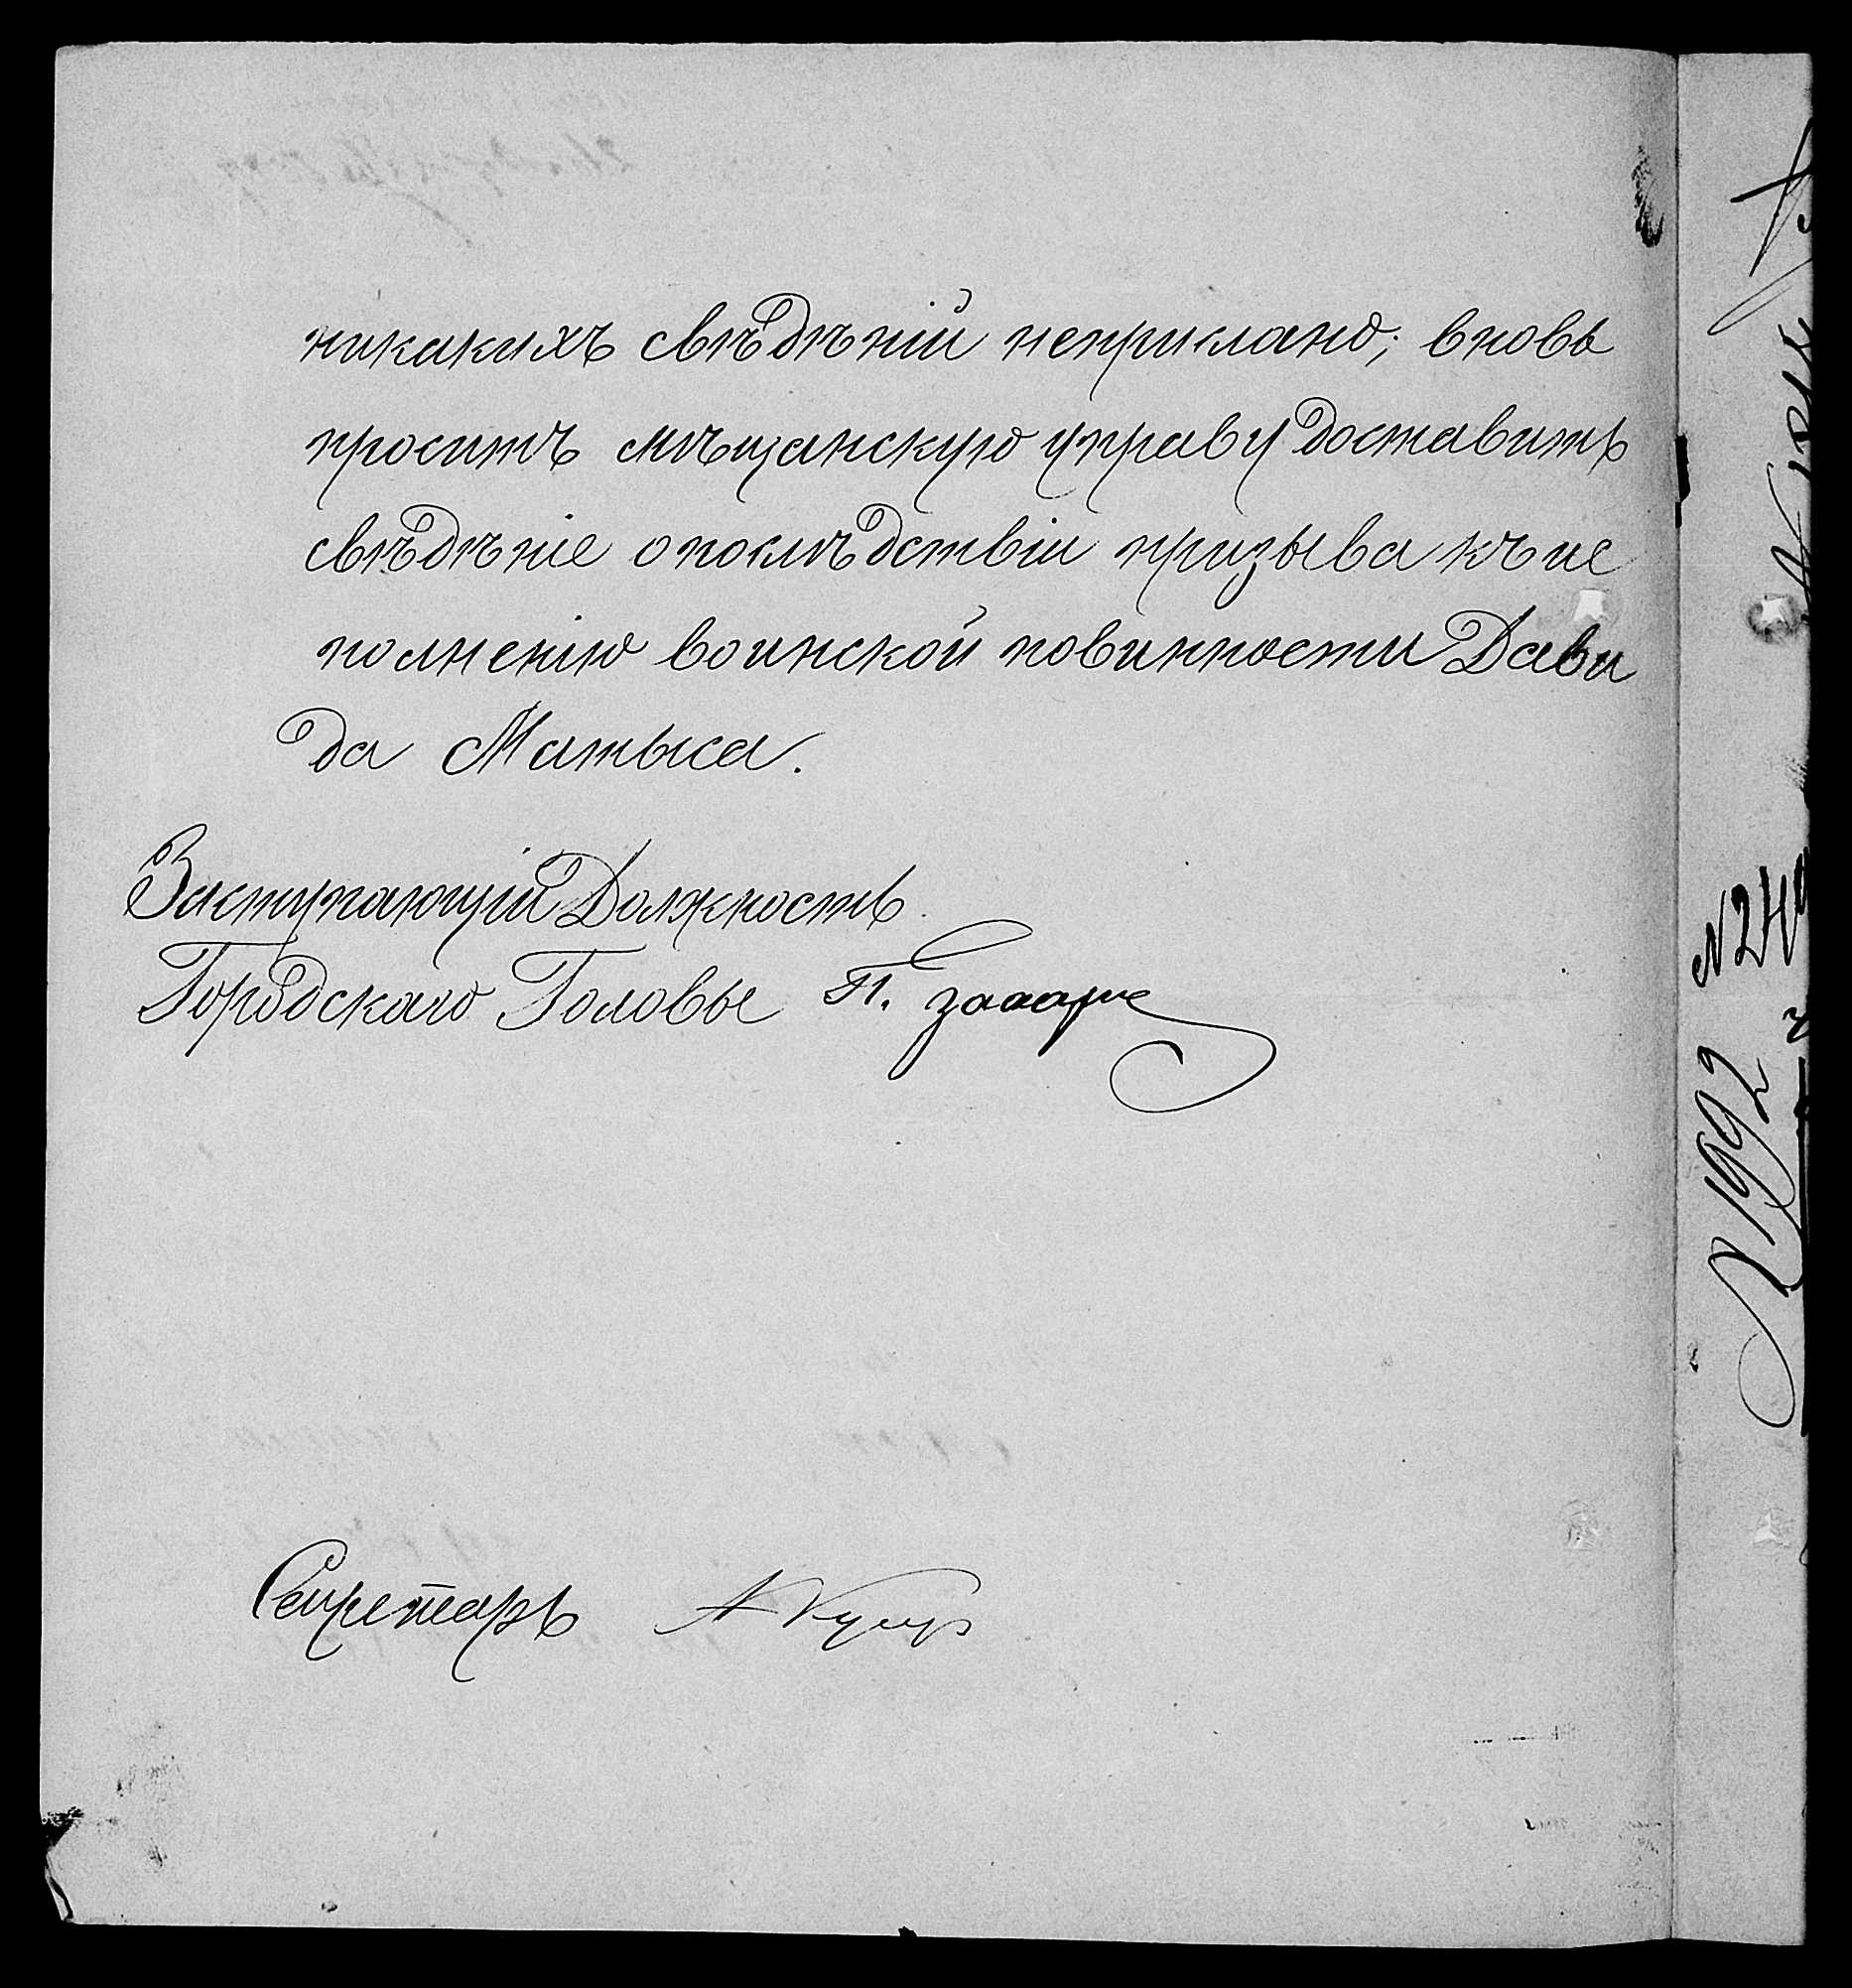 никакихъ свѣдѣній неприслано; вновь
проситъ мѣщанскую управу доставить
свѣдѣніе о послѣдствіи призыва къ ис
полненію воинской повинности Дави
да Матыса.
Заступающій Должность
Городскаго Головы П.
Секретарь А
N 1992